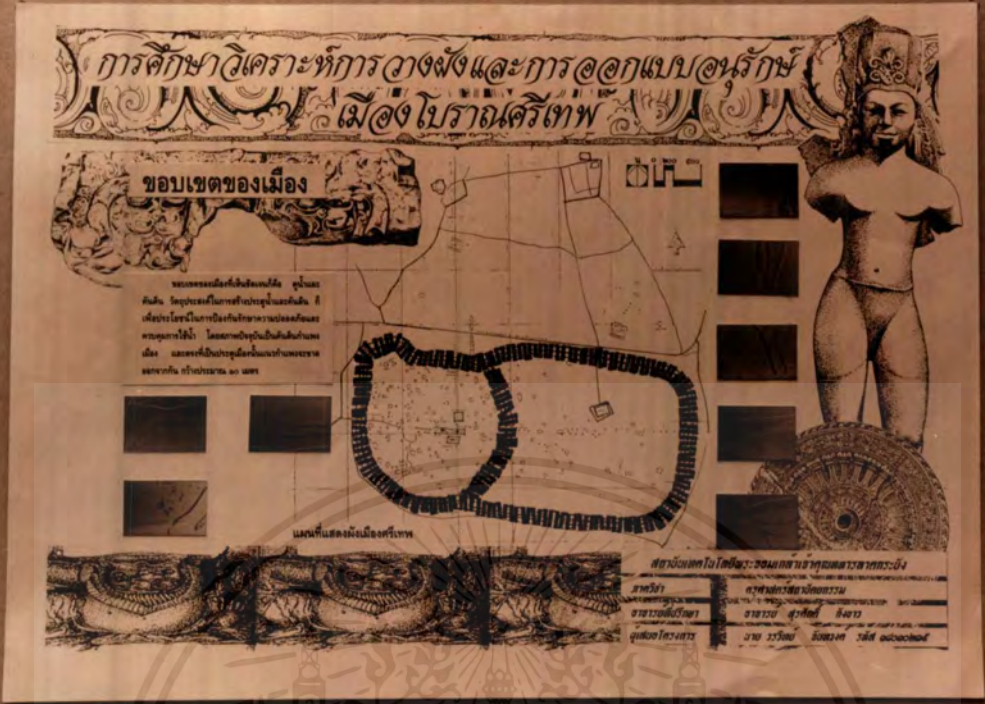 การศึกษาวิเคราะห์การวางผังและการออกแบบอนุรักษ์
เมืองโบราณศรีเทพ
ขอบเขตของเมือง
ขอบเขตของเมืองที่เห็นชัดเจนก็คือ คูน้ำและ
คันดิน วัตถุประสงค์ในการสร้างประตูน้ำและคันดิน ก็
เพื่อประโยชน์ในการป้องกันรักษาความปลอดภัยและ
ควบคุมการใช้น้ำ โดยสภาพปัจจุบันเป็นคันดินกำแพง
เมือง และตรงที่เป็นประตูเมืองนั้นแนวกำแพงจะขาด
ออกจากกัน กว้างประมาณ ๑๐ เมตร
แผนที่แสดงผังเมืองศรีเทพ
สถาบันเทคโนโลยีพระจอมเกล้าเจ้าคุณทหารลาดกระบัง
ภาควิชา ครุศาสตร์สถาปัตยกรรม
อาจารย์ที่ปรึกษา อาจารย์ สุรศักดิ์
ผู้เสนอโครงการ นาย รหัส